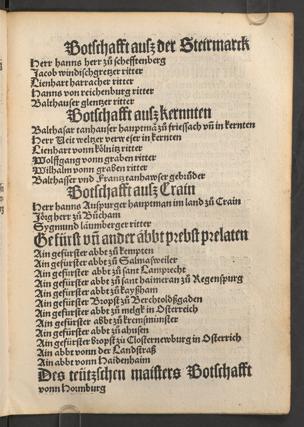 Botschafft ausz der Steirmarck
Herr hanns herr zů schefftenberg
Jacob windischgretzer ritter
Lienhart harracher ritter
Hanns von reichenburg ritter
Balthauser glentzer ritter
Botschafft ausz kernnten
Balthasar tanhauser hauptmā zů friessach vñ in kernten
Herr Veit weltzer verweser in kernten
Lienhart vonn kölnitz ritter
Wolffgang vonn graben ritter
Wilhalm vonn graßen ritter
Balthasser vnd Frantz tanhawser gebrůder
Botschafft ausz Crain
Herr hanns Auspurger hauptman im land zů Crain
Jörg herr zů Bůcham
Sygmund läumberger ritter
Gefürst vñ ander äbbt prebst prelaten
Ain gefürster abbt zů kempten
Ain gefürster abbt zů Salmasweiler
Ain gefürster abbt zů sant Lamprecht
Ain gefürster abbt zů sant haimeran zů Regenspurg
Ain gefürster abbt zů kayßham
Ain gefürster Bropst zů Berchtoldßgaden
Ain gefürster abbt zů melgk in Osterreich
Ain gefürster abbt zů kremsmünster
Ain gefürster abbt zů ahusen
Ain gefürster bropst zů Closternewburg in Osterrich
Ain abbt vonn der Landstraß
Ain abbt vonn Haidenhaim
Des teütschen maisters Botschafft
vonn Hornburg